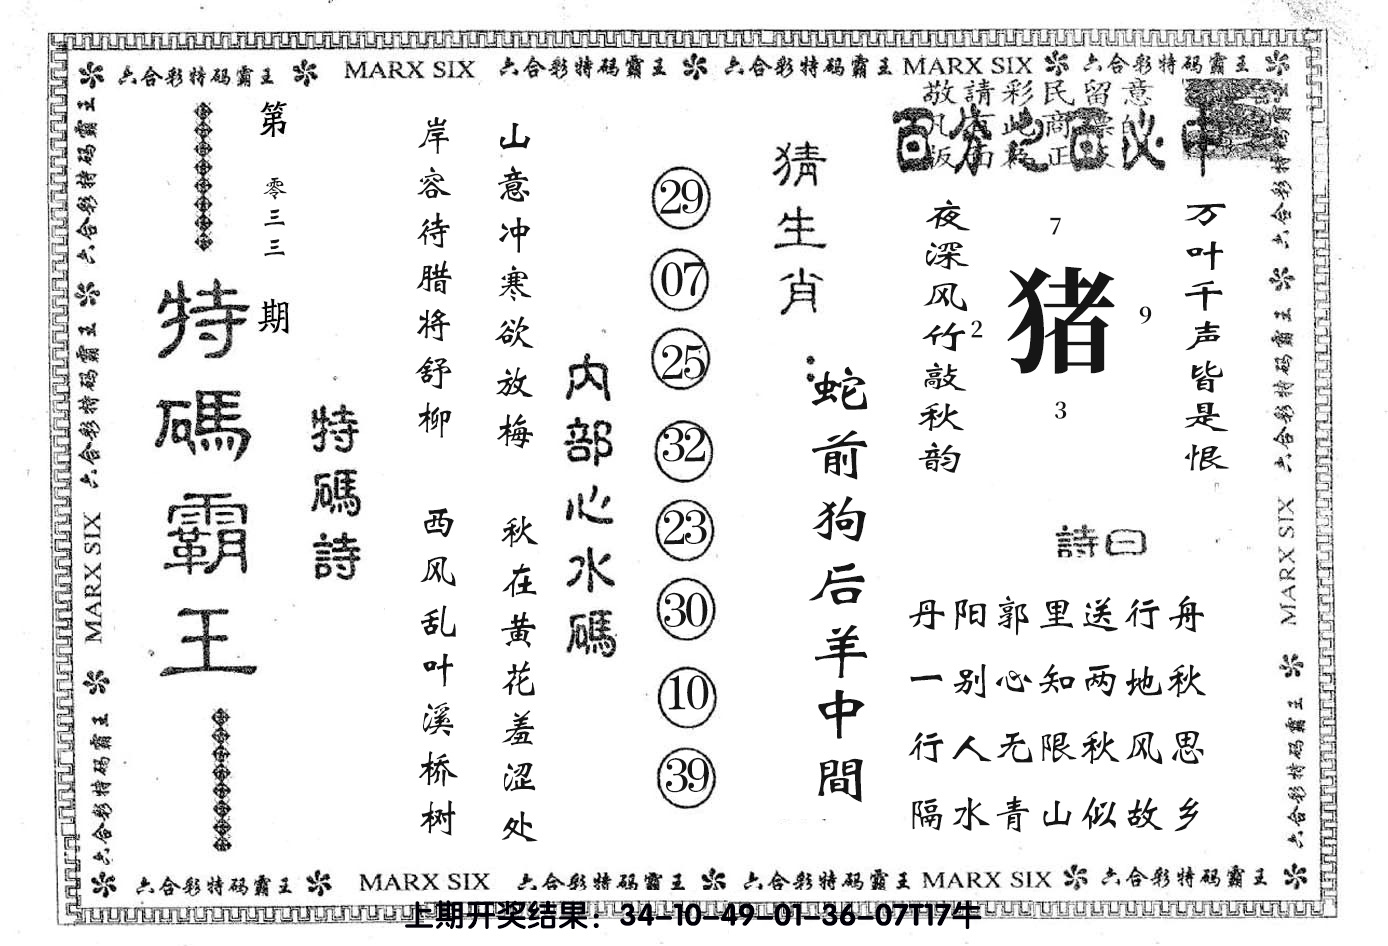 六合彩特码霸王 MARX SIX 六合彩特码霸王 六合彩特码霸王 MARX SIX 六合彩特码霸王
敬請彩民留意
百分之百必中
第零三三期
特碼霸王
特碼詩
岸容待腊将舒柳
山意冲寒欲放梅
西风乱叶溪桥树
秋在黄花羞涩处
内部心水碼
29
07
25
32
23
30
10
39
猜生肖:
蛇前狗后羊中間
夜深风竹敲秋韵
万叶千声皆是恨
7
2
猪
9
3
詩曰
丹阳郭里送行舟
一别心知两地秋
行人无限秋风思
隔水青山似故乡
六合彩特码霸王 六合彩特码霸王 MARX SIX 六合彩特码霸王
六合彩特码霸王 六合彩特码霸王 MARX SIX 六合彩特码霸王
六合彩特码霸王 MARX SIX 六合彩特码霸王 六合彩特码霸王 MARX SIX 六合彩特码霸王
上期开奖结果：34-10-49-01-36-07T17牛